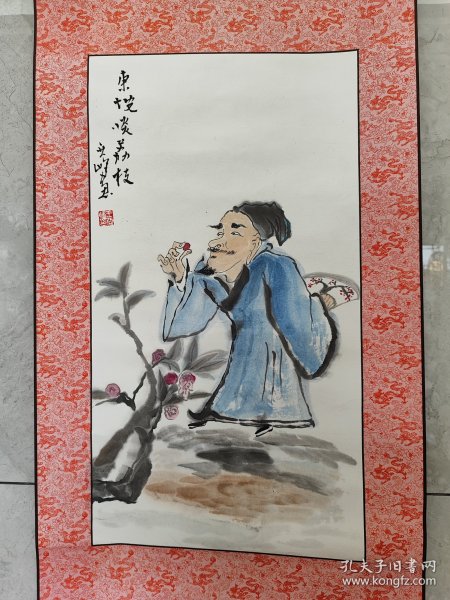 東坡啖荔枝
孔夫子旧书网
www.kongfz.com